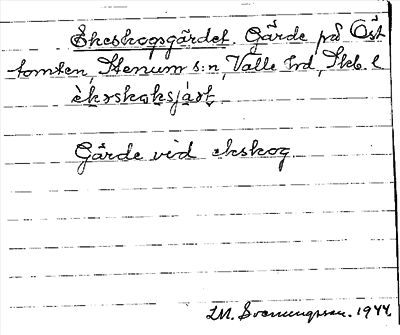 Ekeskogsgärdet. Gärde på Öst
tomten, Stenum s:n, Valle hd, Skb. l
èkɷskɷksjáʀt
Gärde vid ekskog
M. Svenungsson. 1944.